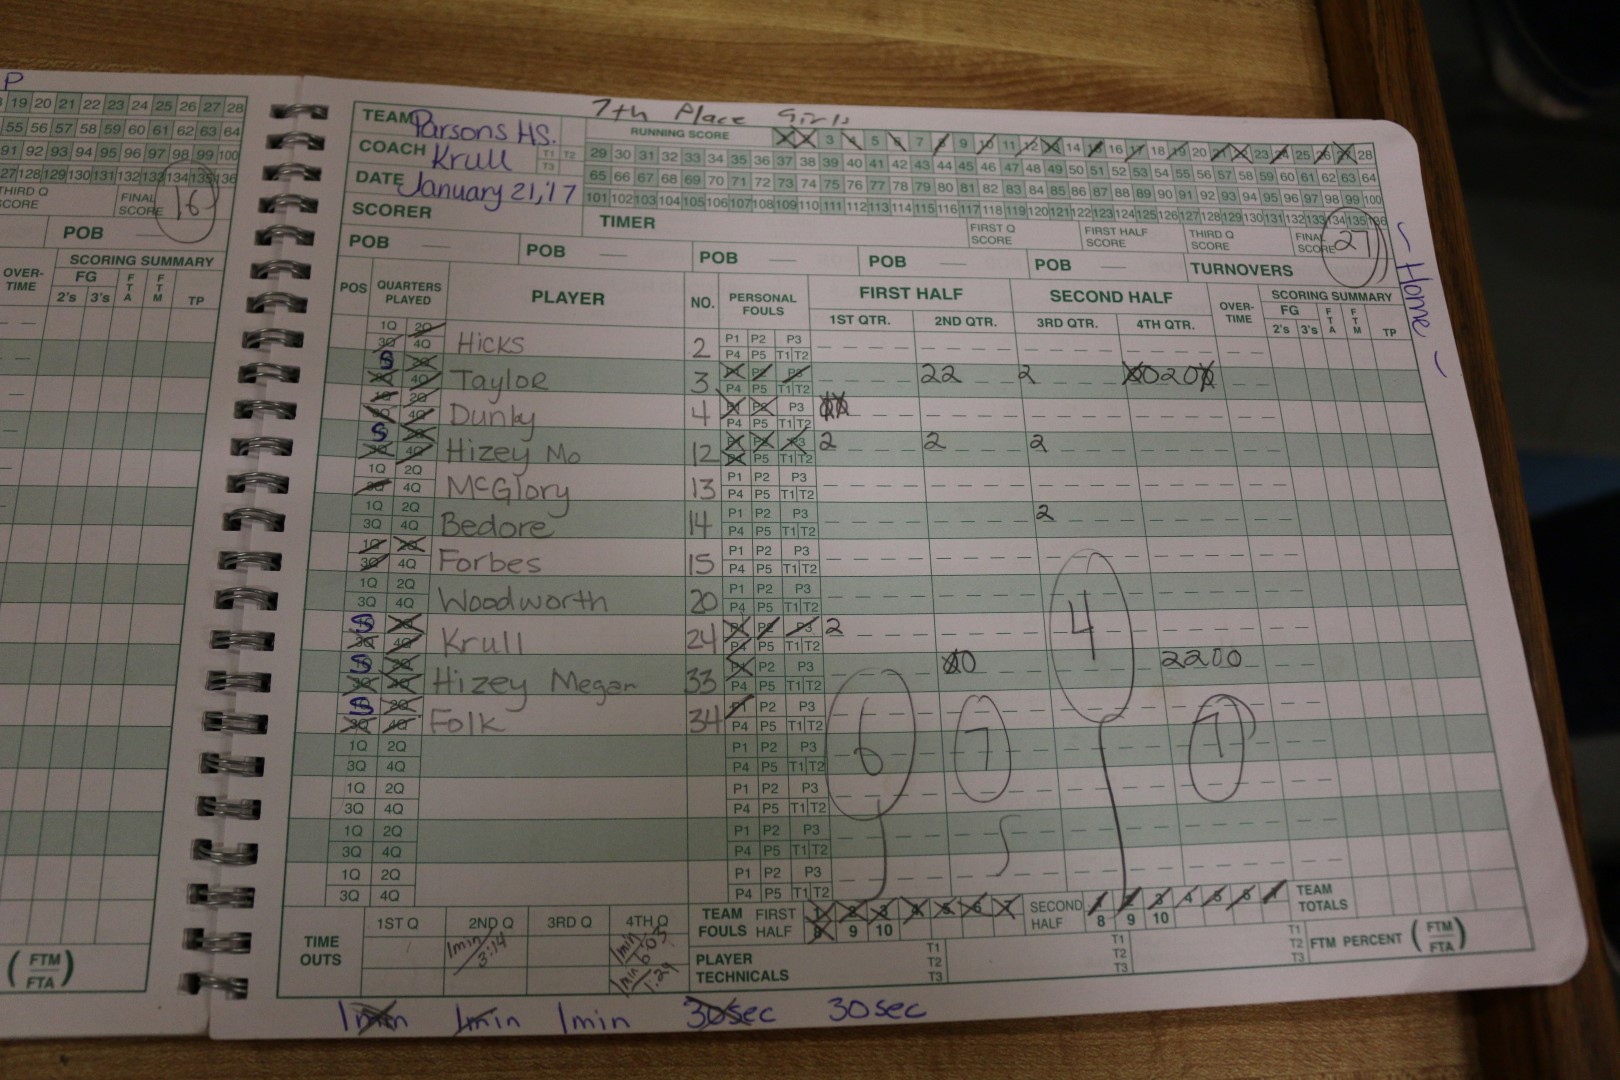 P
19 20 21 22 23 24 25 26 27 28
55 56 57 58 59 60 61 62 63 64
91 92 93 94 95 96 97 98 99 100
127 128 129 130 131 132 133 134 135 136
THIRD Q SCORE FINAL SCORE 16
POB
OVER-TIME SCORING SUMMARY
FG FTA FTM TP
2's 3's
( FTM / FTA )
7th Place Girls
TEAM Parsons HS.
COACH Krull T1 T2 T3
DATE January 21, '17
RUNNING SCORE 3 4 5 6 7 8 9 10 11 12 14 15 16 17 18 19 20 21 22 23 24 25 26 27 28
29 30 31 32 33 34 35 36 37 38 39 40 41 42 43 44 45 46 47 48 49 50 51 52 53 54 55 56 57 58 59 60 61 62 63 64
65 66 67 68 69 70 71 72 73 74 75 76 77 78 79 80 81 82 83 84 85 86 87 88 89 90 91 92 93 94 95 96 97 98 99 100
101 102 103 104 105 106 107 108 109 110 111 112 113 114 115 116 117 118 119 120 121 122 123 124 125 126 127 128 129 130 131 132 133 134 135 136
SCORER TIMER FIRST Q SCORE FIRST HALF SCORE THIRD Q SCORE FINAL SCORE 27
POB POB POB POB POB TURNOVERS
- Home -
POS QUARTERS PLAYED PLAYER NO. PERSONAL FOULS FIRST HALF SECOND HALF OVER-TIME SCORING SUMMARY
1ST QTR. 2ND QTR. 3RD QTR. 4TH QTR. FG FTA FTM TP
2's 3's
1Q 2Q 3Q 4Q Hicks 2 P1 P2 P3 P4 P5 T1 T2
S 2Q 3Q 4Q Taylor 3 P1 P2 P3 P4 P5 T1 T2 22 2 020
1Q 2Q 3Q 4Q Dunky 4 P1 P2 P3 P4 P5 T1 T2
S 2Q 3Q 4Q Hizey Mo 12 P1 P2 P3 P4 P5 T1 T2 2 2 2
1Q 2Q 3Q 4Q McGlory 13 P1 P2 P3 P4 P5 T1 T2
1Q 2Q 3Q 4Q Bedore 14 P1 P2 P3 P4 P5 T1 T2 2
1Q 2Q 3Q 4Q Forbes 15 P1 P2 P3 P4 P5 T1 T2
1Q 2Q 3Q 4Q Woodworth 20 P1 P2 P3 P4 P5 T1 T2
S 2Q 3Q 4Q Krull 24 P1 P2 P3 P4 P5 T1 T2 2
S 2Q 3Q 4Q Hizey Megan 33 P1 P2 P3 P4 P5 T1 T2 0 2200
S 2Q 3Q 4Q Folk 34 P1 P2 P3 P4 P5 T1 T2
6 7 4 7
1Q 2Q 3Q 4Q P1 P2 P3 P4 P5 T1 T2
1Q 2Q 3Q 4Q P1 P2 P3 P4 P5 T1 T2
1Q 2Q 3Q 4Q P1 P2 P3 P4 P5 T1 T2
1Q 2Q 3Q 4Q P1 P2 P3 P4 P5 T1 T2
TIME OUTS 1ST Q 2ND Q 3RD Q 4TH Q
1min 3:14
1min 6:05
1min 1:29
TEAM FOULS FIRST HALF 1 2 3 4 5 6 7 8 9 10 SECOND HALF 1 2 3 4 5 6 7 8 9 10 TEAM TOTALS
PLAYER TECHNICALS T1 T2 T3 T1 T2 T3 T1 T2 T3 FTM PERCENT ( FTM / FTA )
1min 1min 1min 30sec 30sec